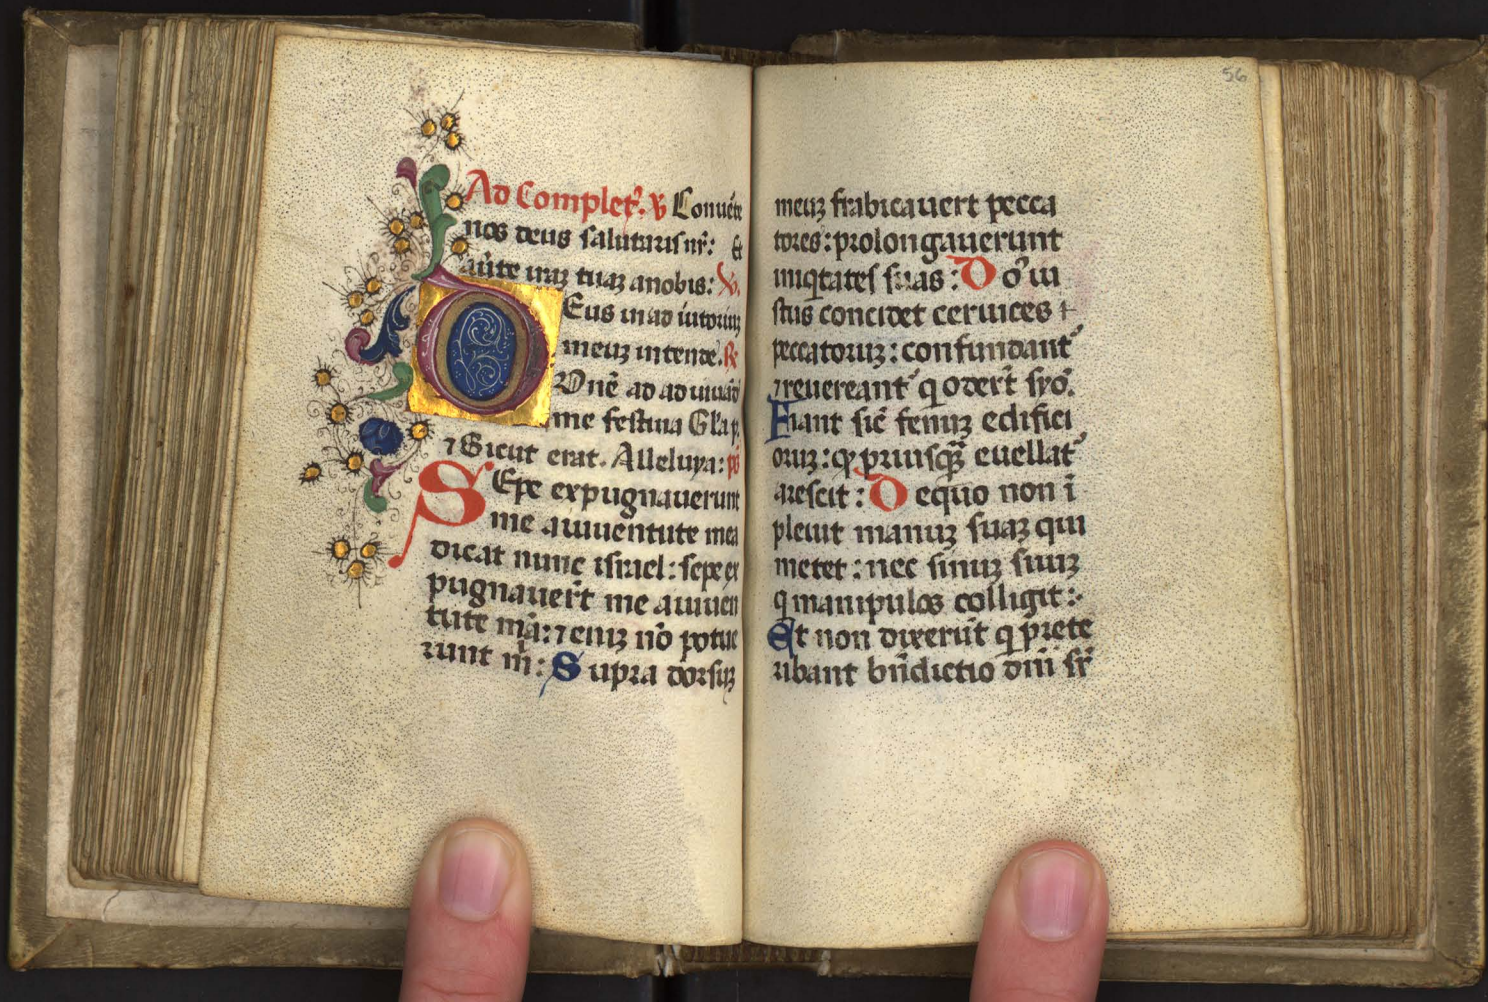 Ad Complet᷒. ℣ Conu̾te
nos deus salutaris nr̄: Et
au̾te iraꝫ tuaꝫ anobis: ℣.
DEus in ad iutoriuꝫ
meuꝫ intende. ℟
Dn̄e ad ad iuuād
me festina Gl̄a p
⁊ Sicut erat. Alleluya: pō
SEpe expugnauerunt
me a iuuentute mea
dicat nunc israel: sepe ex
pugnauer̄t me a iuuen
tute mā: ⁊ eniꝫ nō potue
runt m̄: Supra dorsuꝫ
56
meuꝫ frabicauert pecca
tores: prolongauerunt
iniq̄tates suas: Do᷒ iu
stus concidet ceruices
peccatoruꝫ: confundant᷒
⁊ reuereant᷒ q oder̄t syō.
Fiant sic̄ fenuꝫ edifici
oruꝫ: qꝫ priusq̄ꝫ euellat᷒
arescit: De quo non ī
pleuit manuꝫ suaꝫ qui
metet: nec sinuꝫ suuꝫ
q manipulos colligit:
Et non dixerūt q p̄rete
ribant bn̄dictio dn̄i sr̄